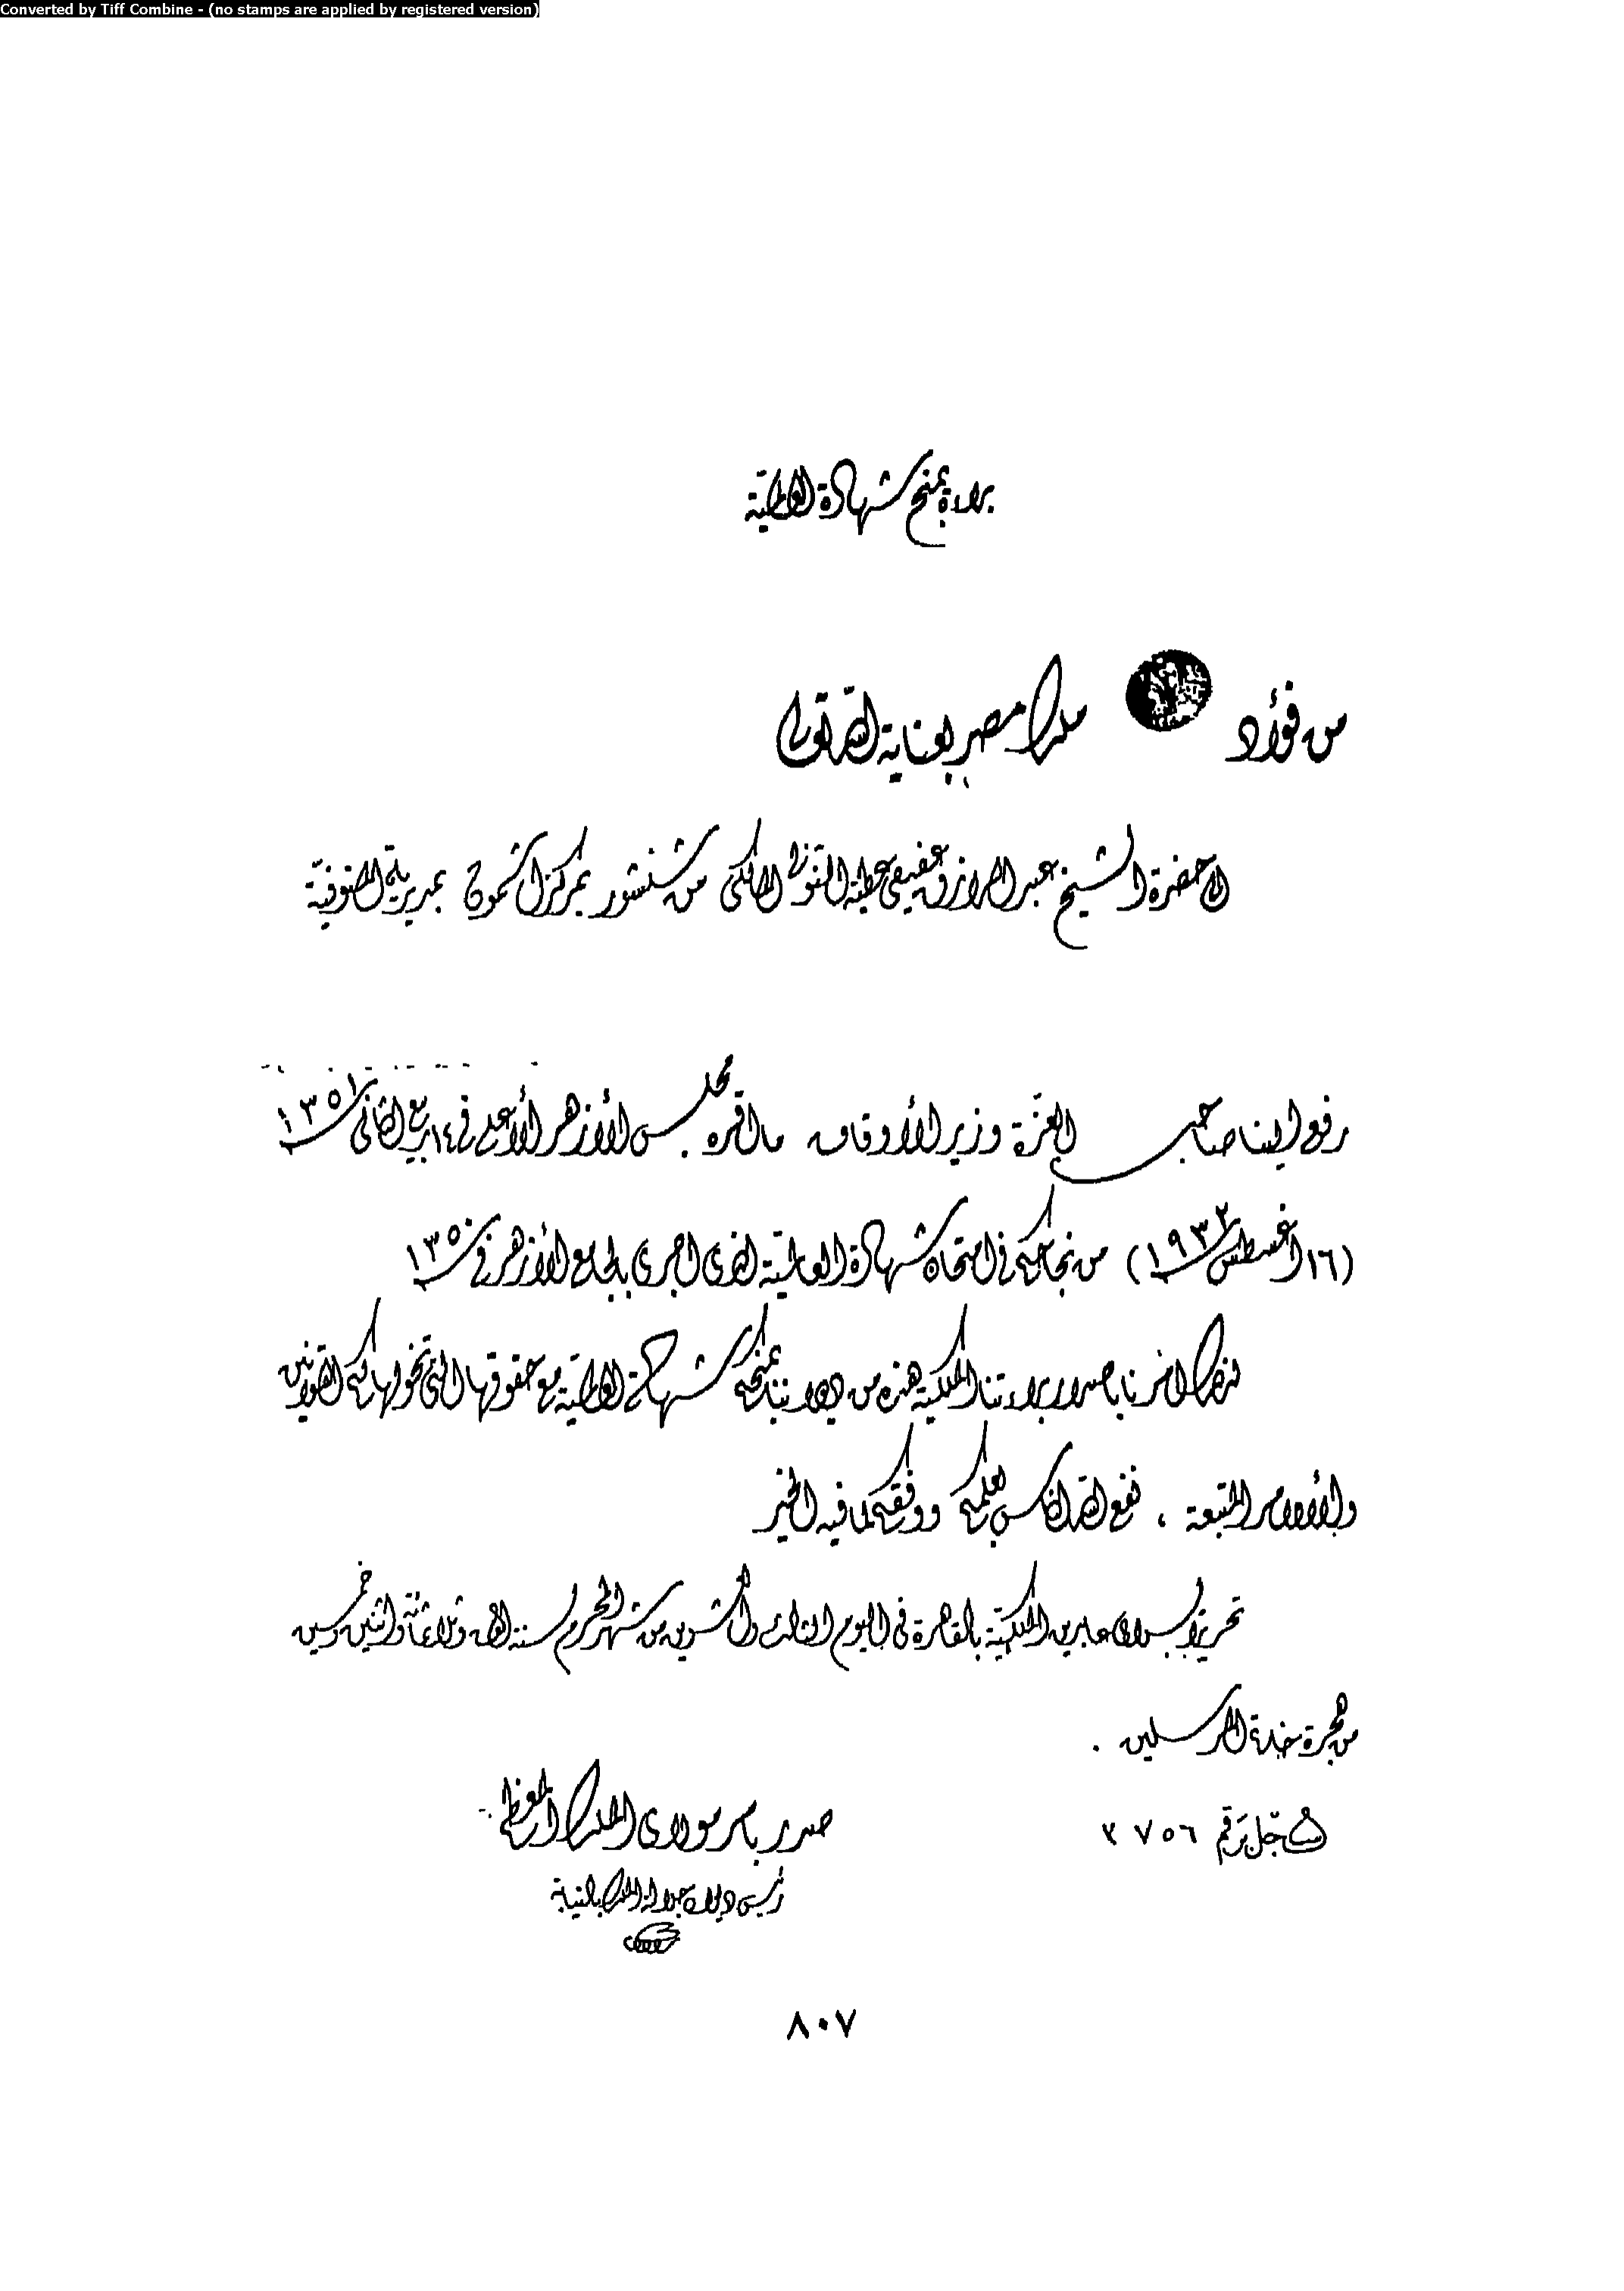 Converted by Tiff Combine - (no stamps are applied by registered version)
براءة بمنح شهادة العالمية
من فؤاد ملك مصر بعناية الله تعالى
إلى حضرة الشيخ عبد الرازق عفيفى عطية النوبى المالكى من شنشور بمركز أشمون بمديرية المنوفية
رفع إلينا صاحب العزة وزير الأوقاف ما قرره مجلس الأزهر الأعلى فى ١٤ ربيع الثانى ١٣٥١
(١٦ أغسطس ١٩٣٢) من نجاحكم فى امتحان شهادة العالمية الذى أجرى بالجامع الأزهر فى ١٣٥٠
فقد أمرنا بإصدار براءتنا الملكية هذه من ديواننا بمنحكم شهادة العالمية مع حقوقها التى تخولها لكم القوانين
والأوامر المتبعة ، نفع الله الناس بعلمكم ووفقكم لما فيه الخير
تحريرا بسراى عابدين الملكية بالقاهرة فى اليوم الثالث والعشرين من شهر المحرم سنة ألف وثلاثمائة واثنين وخمسين
من هجرة خاتم المرسلين .
سُجّل برَقم ٣٧٥٦
صدر بأمر مولاى الملك المعظم
رئيس ديوان جلالة الملك بالنيابة
٨٠٧